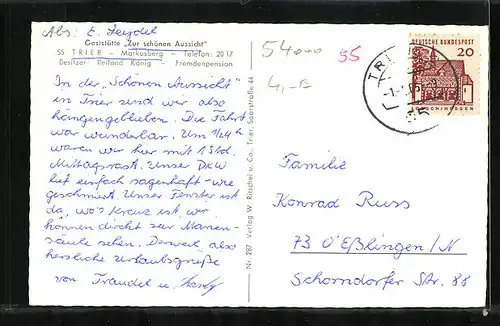 Abs: E. Seydel
Gaststätte "Zur schönen Aussicht"
55 TRIER - Markusberg - Telefon: 2017
Besitzer Reiland König Fremdenpension
In der "Schönen Aussicht"
in Trier sind wir also
hängengeblieben. Die Fahrt
war wunderbar. Um 1/2
waren wir hier mit 1 Std.
Mittagsrast. Unser DKW
lief einfach sagenhaft - wie
geschmiert. Unser Fenster ist
da, wo's Kreuz ist, wir
können direkt zur Marien-
säule sehen. Derweil also
herzliche Urlaubsgrüße
von Traudel u.
Nr. 287 Verlag W. Ritschel u. Co., Trier, Saarstraße 44
54000
55
DEUTSCHE BUNDESPOST
20
TRIER
Familie
Konrad Russ
73 Eßlingen/N
Schorndorfer Str. 88